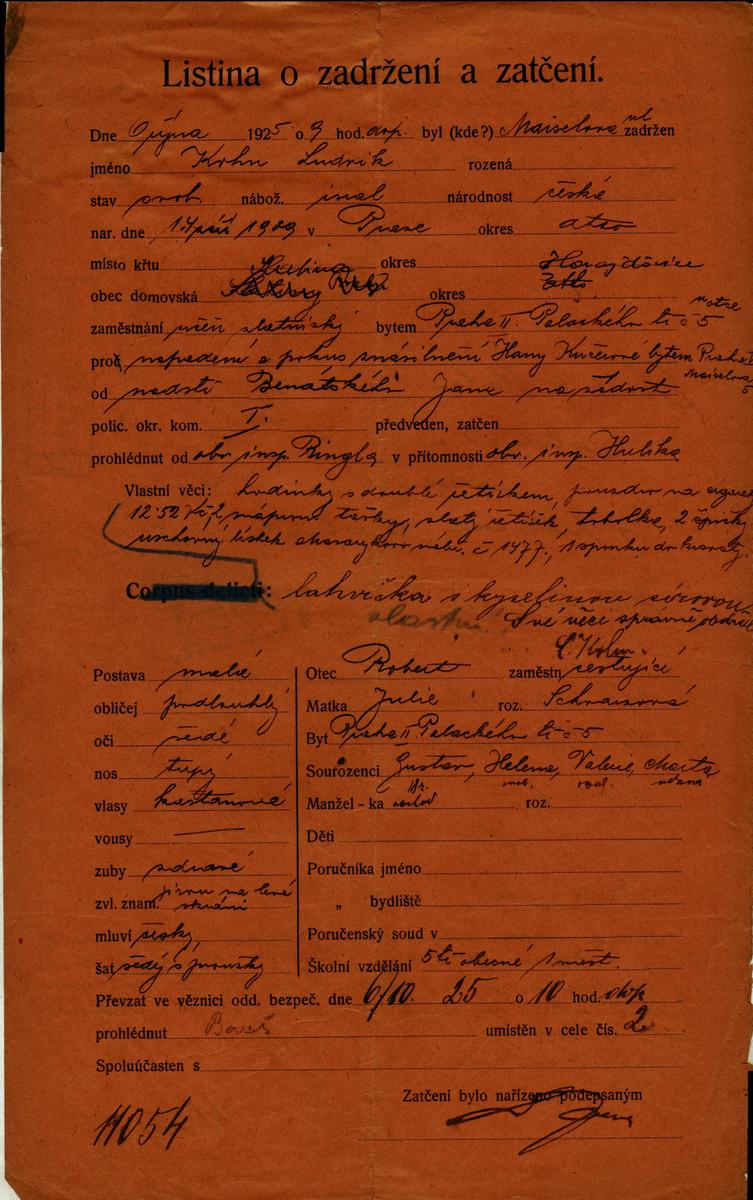 Listina o zadržení a zatčení.
Dne 6 října 1925 o 9 hod. dop. byl (kde?) Maiselova ul zadržen
jméno Kohn Ludvík rozená
stav svob. nábož. israel národnost česká
nar. dne 14 září 1909 v Praze okres
místo křtu okres Horažďovice
obec domovská okres
zaměstnání učeň zlatnický bytem Praha II. Palackého tř č 5
proč napadení a pokus znásilnění Hany Kučerové bytem Praha I Maiselova 5
od Benátského Jana na žádost
polic. okr. kom. I. předveden, zatčen
prohlédnut od obv. insp. Ringla v přítomnosti obv. insp. Hulíka
Vlastní věci: hodinky s doublé řetízkem, pouzdro na
12·52 Kč, 2 tašky, zlatý řetízek, tobolka, 2
lístek č 1477, 1 sponku do kravaty.
Corpus delicti: lahvička s kyselinou sírovou
Své věci správně obdržel
L. Kohn
Postava malá
obličej podlouhlý
oči šedé
nos tupý
vlasy kaštanové
vousy
zuby zdravé
zvl. znam. na levé skráni
mluví česky
šat šedý s proužky
Otec Robert zaměstn cestující
Matka Julie roz.
Byt Praha II. Palackého tř č 5
Sourozenci Gustav, Helena, Valerie, Marta
Manžel-ka roz.
Děti
Poručníka jméno
„ bydliště
Poručenský soud v
Školní vzdělání 5 tř obecné 1 měšť.
Převzat ve věznici odd. bezpeč. dne 6/10. 25 o 10 hod. dop
prohlédnut umístěn v cele čís. 2
Spoluúčasten s
Zatčení bylo nařízeno podepsaným
11054